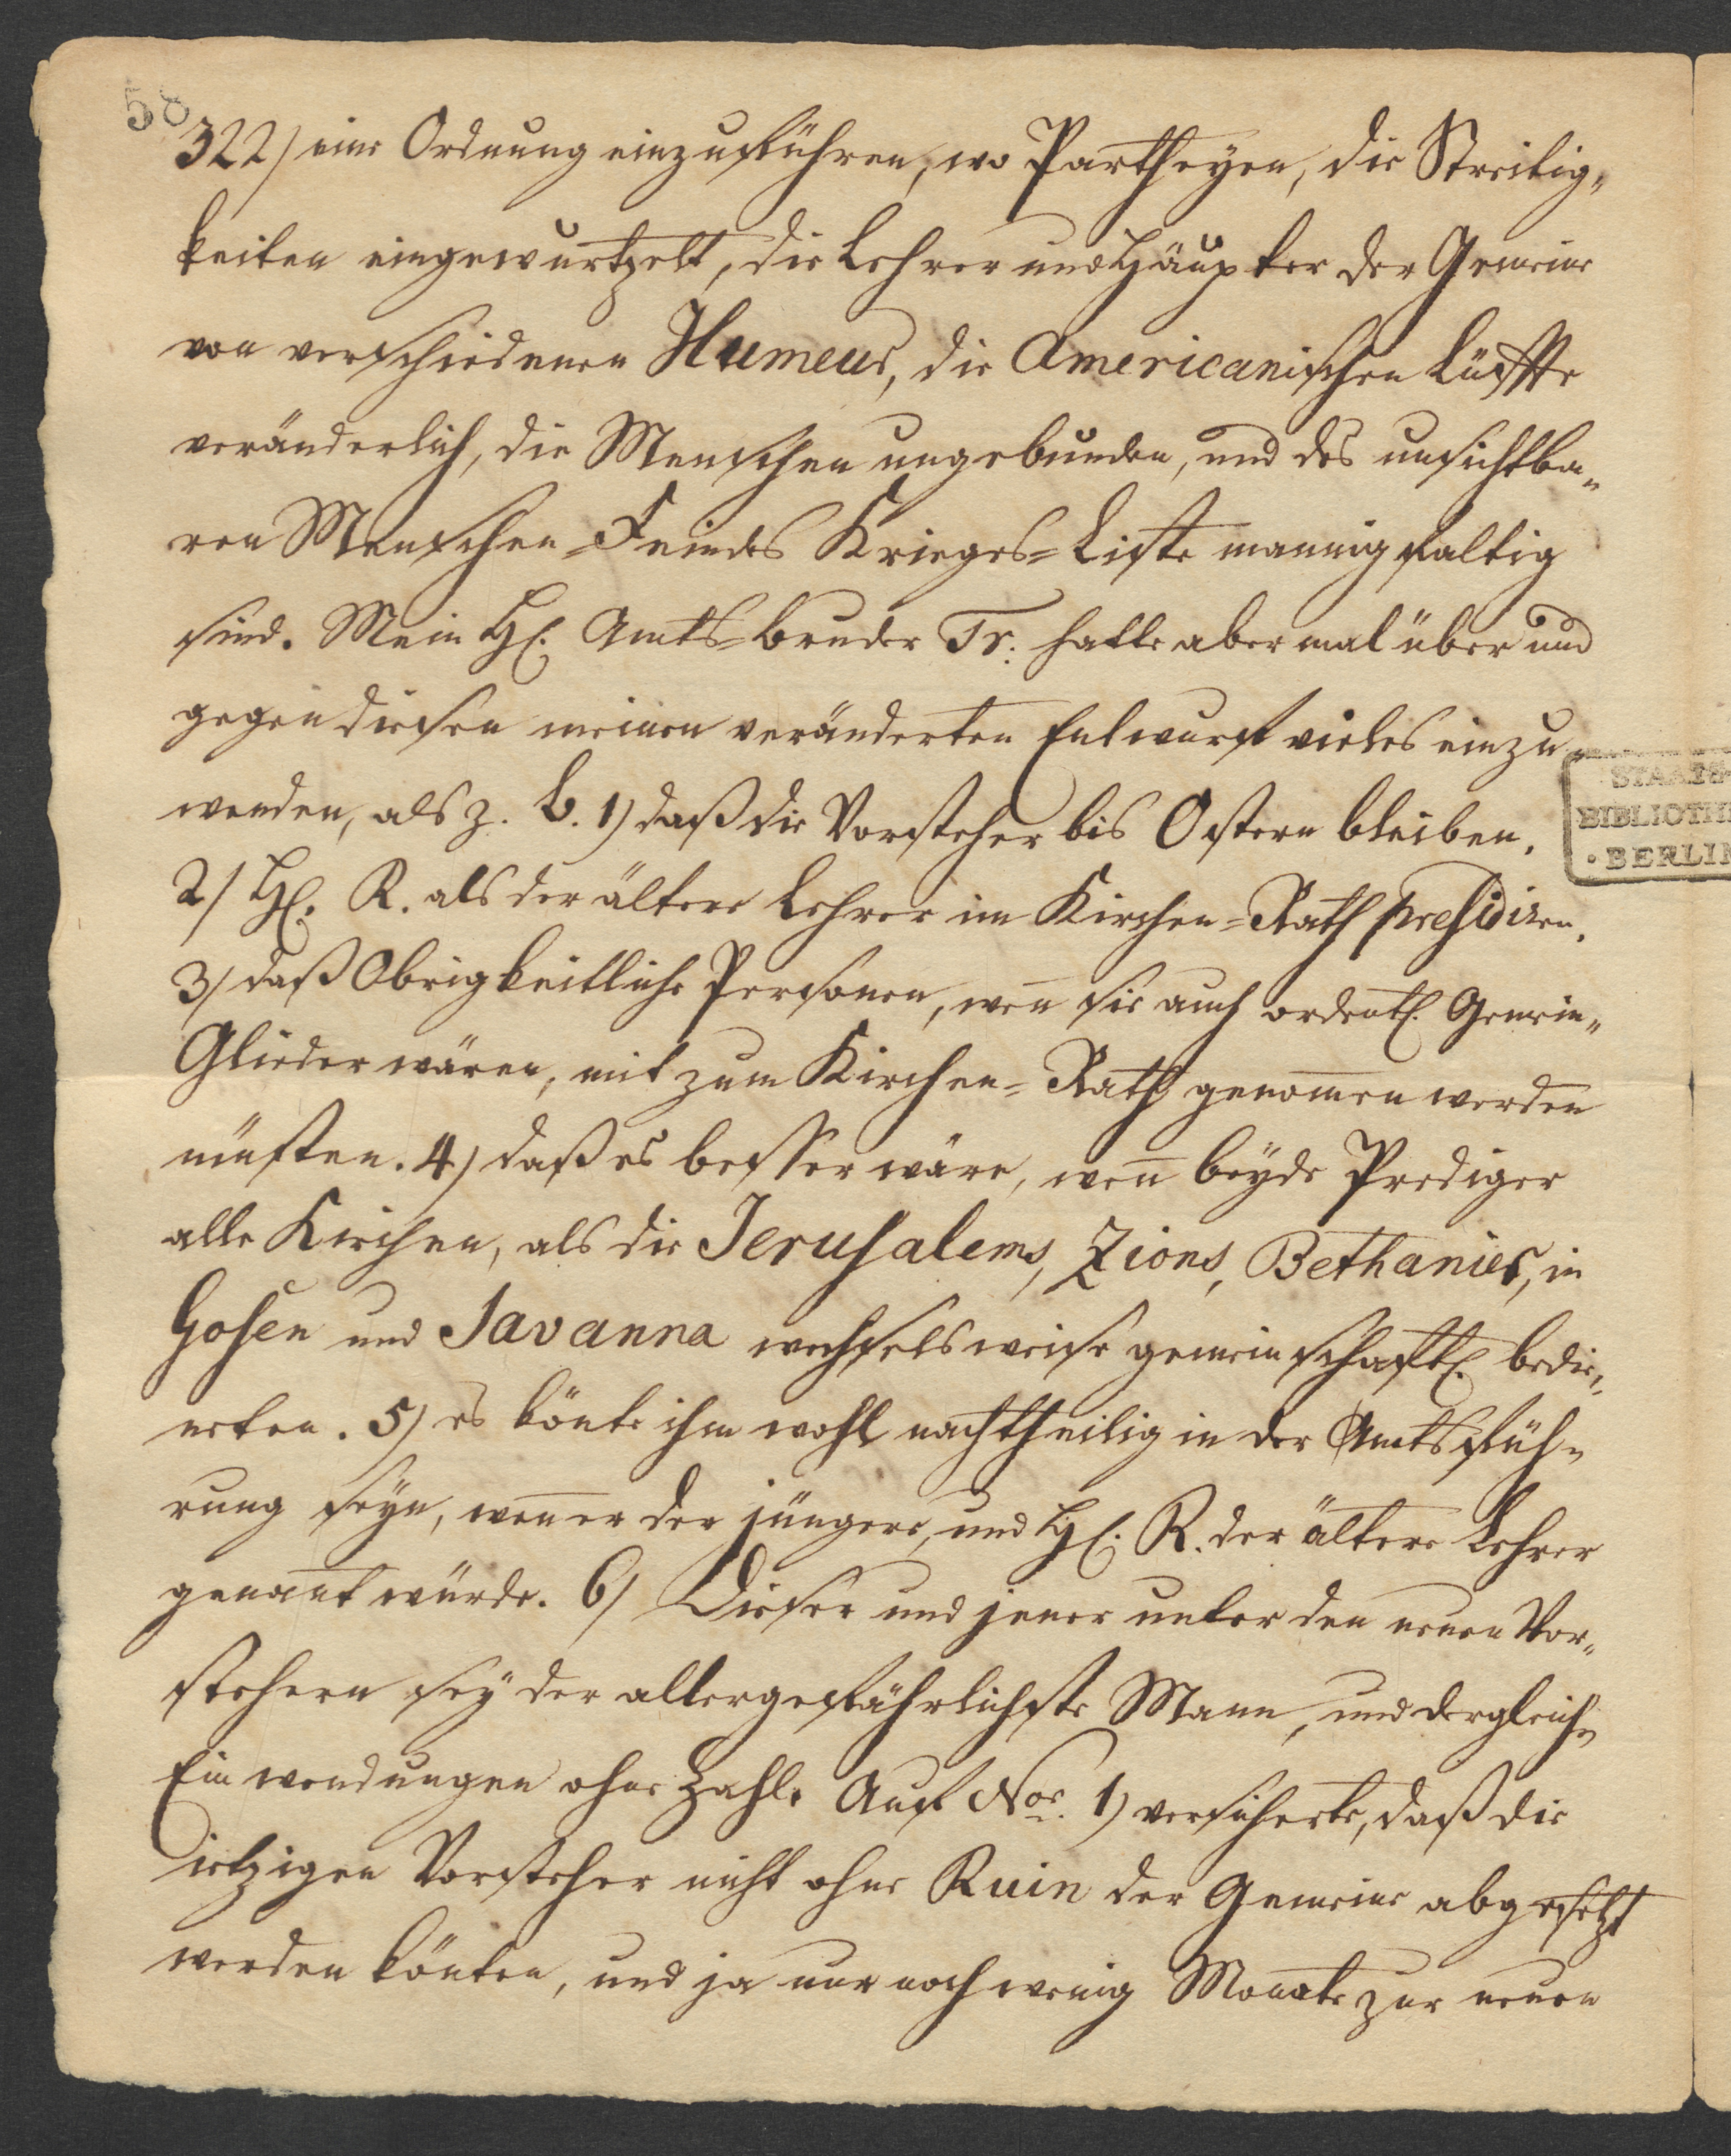 58
322) eine Ordnung einzuführen, wo Partheyen, die Streitig„
keiten eingewurtzelt, die Lehrer und Häupter der Gemeine
von verschiedenen Humeur, die Americanischen Lüffte
veränderlich, die Menschen ungebunden, und des unsichtba„
ren Menschen-Feindes Krieges-Liste mannigfaltig
sind. Mein H. Amts-bruder Tr: hatte abermal über und
gegen diesen meinen veränderten Entwurf vieles einzu„
wenden, als z. E. 1) daß die Vorsteher bis Ostern bleiben.
2) H. R. als der ältere Lehrer im Kirchen-Rath presidiren.
3) daß Obrigkeitliche Personen, weñ sie auch ordentl. Gemein„
Glieder wären, mit zum Kirchen-Rath genom̃en werden
müsten. 4) daß es besser wäre, weñ beyde Prediger
alle Kirchen, als die Jerusalems, Zions, Bethanies, in
Gosen und Savanna wechselsweise gemeinschaftl. bedie„
neten. 5) es könte ihm wohl nachtheilig in der Amtsfüh„
rung seyn, weñ er der jüngere, und H. R. der ältere Lehrer
genañt würde. 6) Dieser und jener unter den neuen Vor„
stehern sey der allergefährlichste Mann, und dergleichn
Einwendungen ohne Zahl. Auf No. 1) versicherte, daß die
ietzigen Vorsteher nicht ohne Ruin der Gemeine abgesetzt
werden könten, und ja nur noch wenig Monate zur neuen
STAATS-
BIBLIOTHE
BERLIN